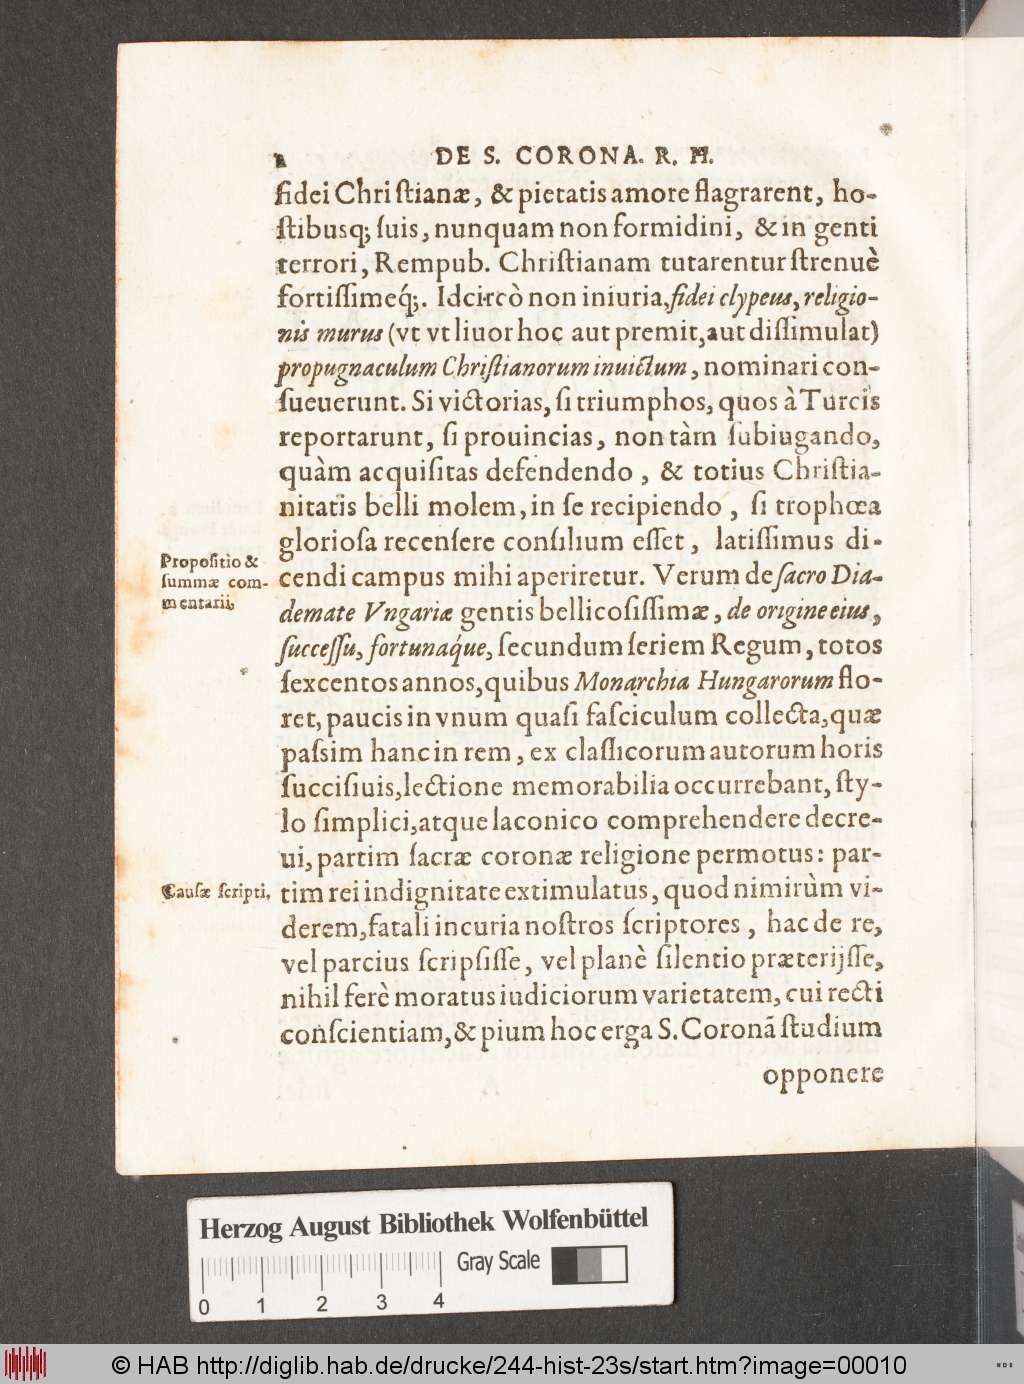 2 DE S. CORONA. R. H.
fidei Chriſtianæ, & pietatis amore flagrarent, ho-
ſtibusq; ſuis, nunquam non formidini, & in genti
terrori, Rempub. Chriſtianam tutarentur ſtrenuè
fortiſſimeq́;. Idcircò non iniuria, fidei clypeus, religio-
nis murus (vt vt liuor hoc aut premit, aut diſſimulat)
propugnaculum Chriſtianorum inuictum, nominari con-
ſueuerunt. Si victorias, ſi triumphos, quos à Turcis
reportarunt, ſi prouincias, non tàm ſubiugando,
quàm acquiſitas defendendo, & totius Chriſtia-
nitatis belli molem, in ſe recipiendo, ſi trophœa
glorioſa recenſere conſilium eſſet, latiſſimus di-
Propoſitio &
ſummæ com-
mentarii,
cendi campus mihi aperiretur. Verum de ſacro Dia-
demate Vngariæ gentis bellicoſiſſimæ, de origine eius,
ſucceſſu, fortunaq́ue, ſecundum ſeriem Regum, totos
ſexcentos annos, quibus Monarchia Hungarorum flo-
ret, paucis in vnum quaſi faſciculum collecta, quæ
paſsim hanc in rem, ex claſſicorum autorum horis
ſucciſiuis, lectione memorabilia occurrebant, ſty-
lo ſimplici, atque laconico comprehendere decre-
ui, partim ſacræ coronæ religione permotus: par-
Cauſæ ſcripti,
tim rei indignitate extimulatus, quod nimirùm vi-
derem, fatali incuria noſtros ſcriptores, hac de re,
vel parcius ſcripſiſſe, vel planè ſilentio præterijſſe,
nihil ferè moratus iudiciorum varietatem, cui recti
conſcientiam, & pium hoc erga S. Coronã ſtudium
opponere
Herzog August Bibliothek Wolfenbüttel
Gray Scale
0 1 2 3 4
© HAB http://diglib.hab.de/drucke/244-hist-23s/start.htm?image=00010